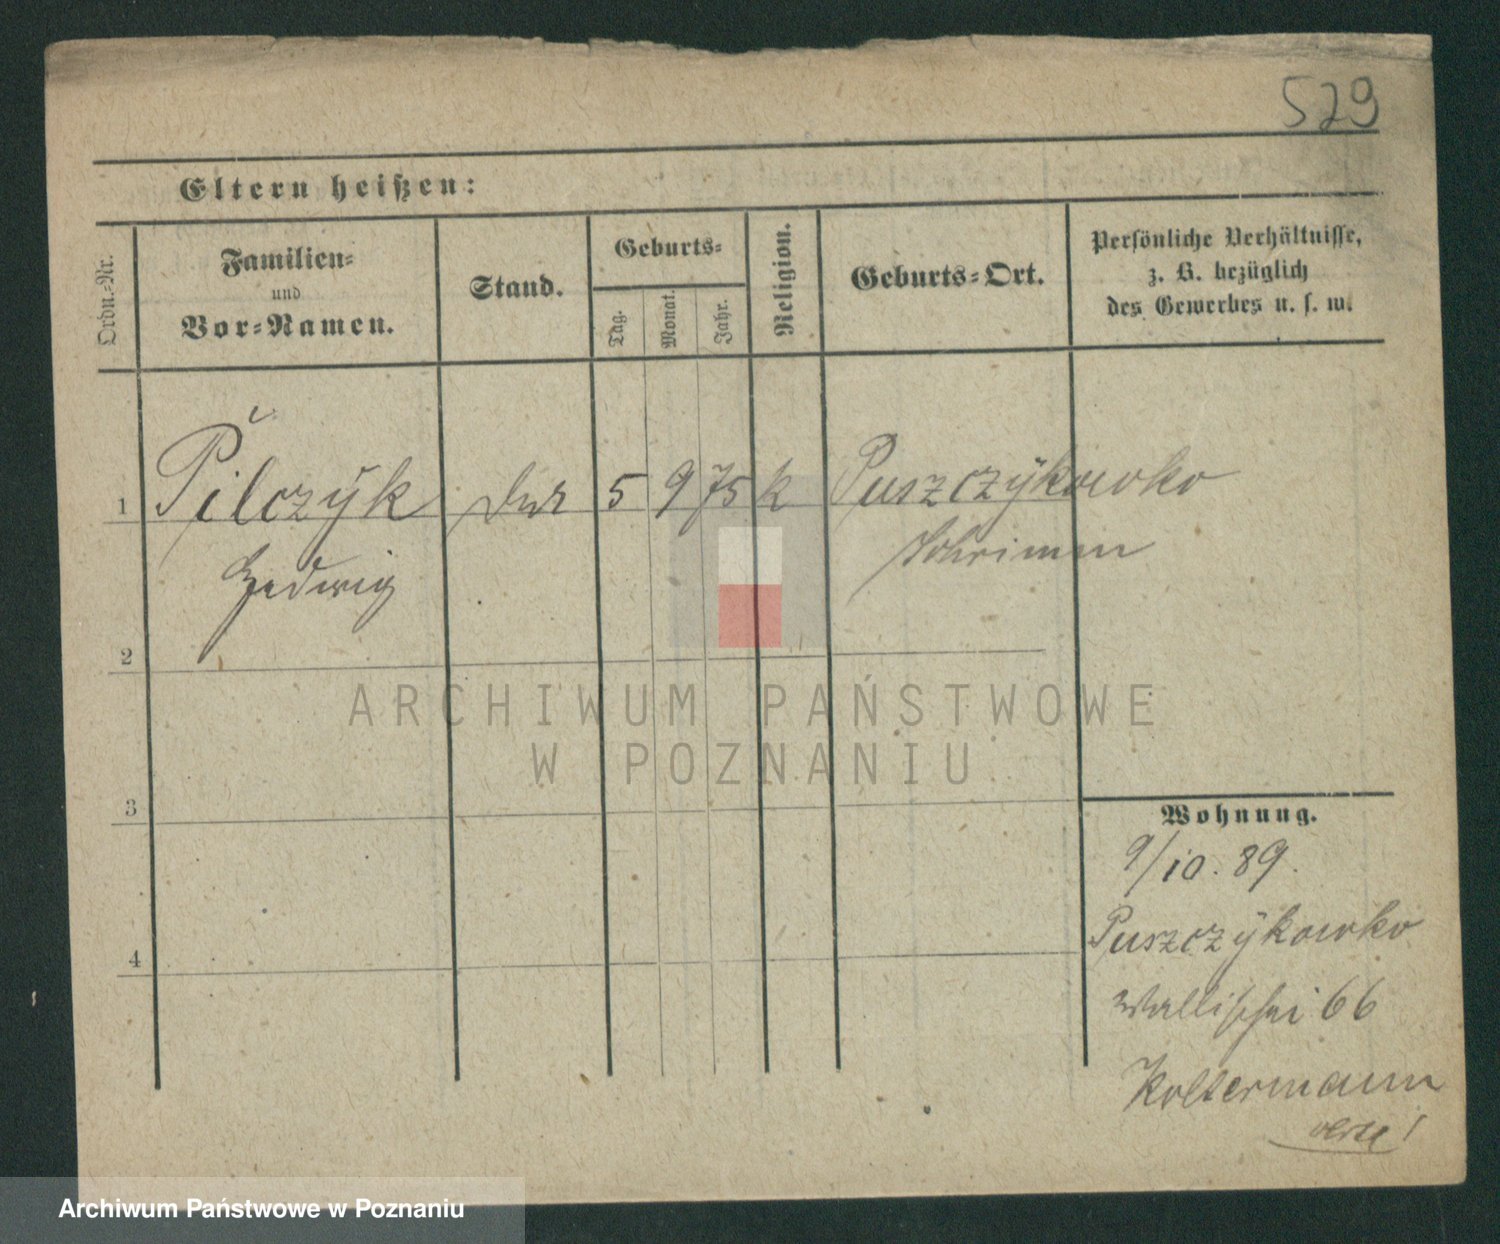 529
Eltern heißen:
Ordn.-Nr.
Familien-
und
Vor-Namen.
Stand.
Geburts-
Tag.
Monat.
Jahr.
Religion.
Geburts-Ort.
Persönliche Verhältnisse,
z. B. bezüglich
des Gewerbes u. s. w.
1 Pilczÿk 5 9 75 k Puszczÿkowko
Hedwig Schrimm
2
3
4
Wohnung.
9/10. 89.
Puszczÿkowko
Wallischei 66
Koltermann
ARCHIWUM PAŃSTWOWE
W POZNANIU
Archiwum Państwowe w Poznaniu